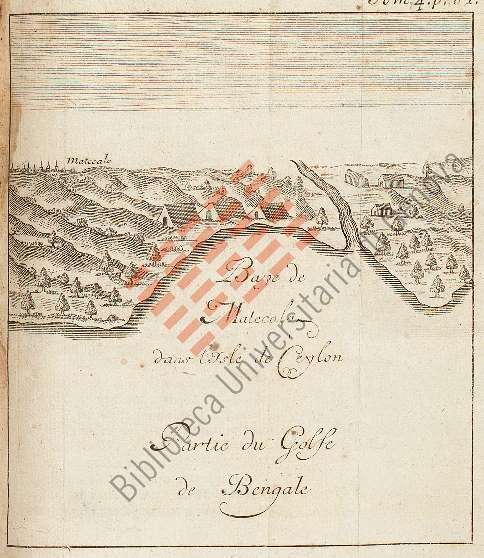 Tom. 4. p. 81.
Matecalo
Baye de
Matecalo
dans l'Isle de Ceylon
Partie du Golfe
de Bengale
Biblioteca Universitaria di Genova